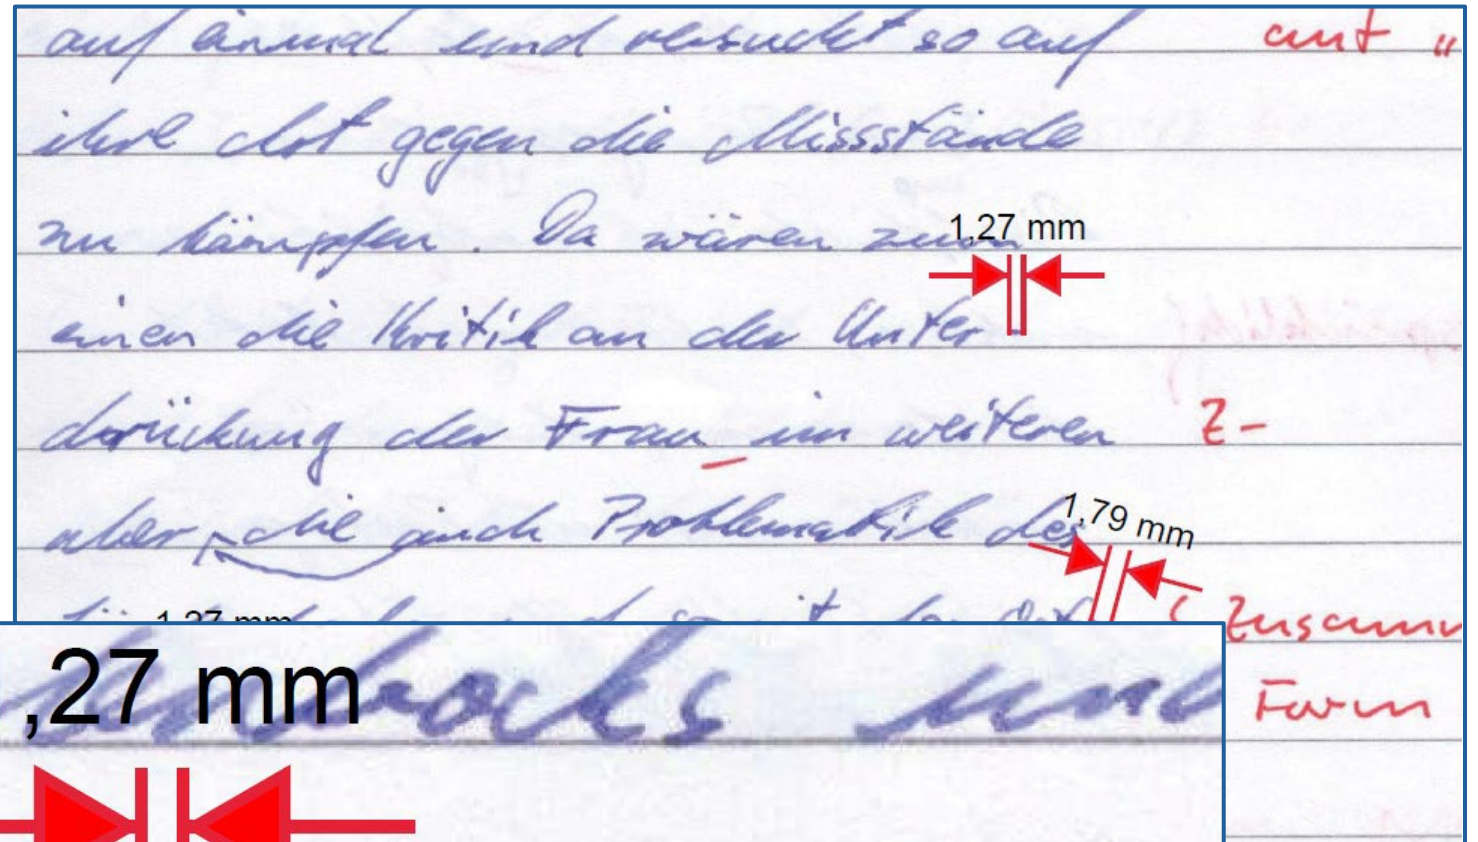 auf einmal und versucht so auf ant "
ihre Art gegen die Missstände
zu kämpfen. Da wären zum
1,27 mm
einen die Kritik an der Unter-
drückung der Frau im weiteren Z-
aber die auch Problematik des
1,79 mm
1,27 mm
und somit
Zusamm
,27 mm
und
Form